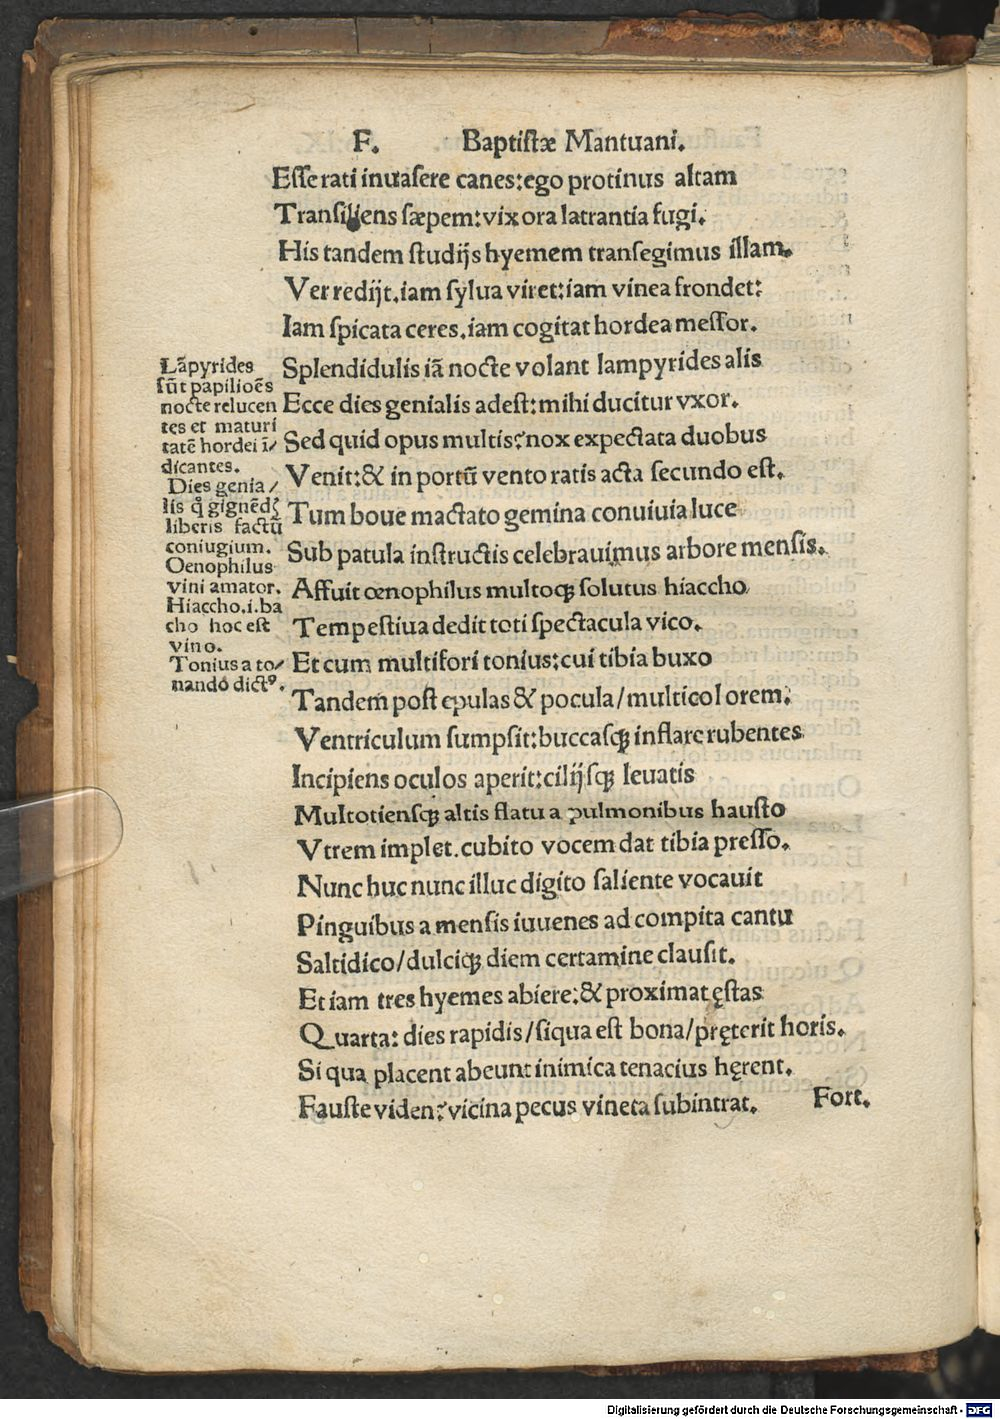 F. Baptistæ Mantuani.
Esse rati inuasere canes: ego protinus altam
Transiliens sæpem: vix ora latrantia fugi.
His tandem studijs hyemem transegimus illam.
Ver redijt. iam sylua viret: iam vinea frondet:
Iam spicata ceres. iam cogitat hordea messor.
Splendidulis iā nocte volant lampyrides alis
Ecce dies genialis adest: mihi ducitur vxor.
Sed quid opus multis? nox expectata duobus
Venit: & in portū vento ratis acta secundo est.
Tum boue mactato gemina conuiuia luce
Sub patula instructis celebrauimus arbore mensis.
Affuit œnophilus multoqꝫ solutus hiaccho
Tempestiua dedit toti spectacula vico.
Et cum multifori tonius: cui tibia buxo
Tandem post epulas & pocula/multicolorem:
Ventriculum sumpsit: buccasqꝫ inflare rubentes
Incipiens oculos aperit: cilijsqꝫ leuatis
Multotiensqꝫ altis flatu a pulmonibus hausto
Vtrem implet. cubito vocem dat tibia presso.
Nunc huc nunc illuc digito saliente vocauit
Pinguibus a mensis iuuenes ad compita cantu
Saltidico/dulciqꝫ diem certamine clausit.
Et iam tres hyemes abiere: & proximat ęstas
Quarta: dies rapidis/siqua est bona/pręterit horis.
Si qua placent abeunt inimica tenacius hęrent.
Fauste viden? vicina pecus vineta subintrat.
Fort.
Lāpyrides
sūt papilioēs
nocte relucen
tes et maturi
tatē hordei ī/
dicantes.
Dies genia/
lis q̇ gignēdꝭ
liberis factū
coniugium.
Oenophilus
vini amator.
Hiaccho.i.ba
cho hoc est
vino.
Tonius a to/
nando dictꝰ.
Digitalisierung gefördert durch die Deutsche Forschungsgemeinschaft - DFG